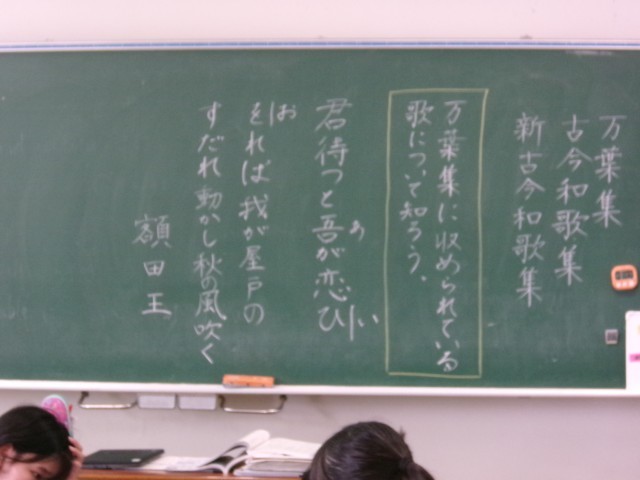 万葉集
古今和歌集
新古今和歌集
万葉集に収められている
歌について知ろう。
君待つと吾が恋ひ
あ
い
をれば我が屋戸の
お
すだれ動かし秋の風吹く
額田王